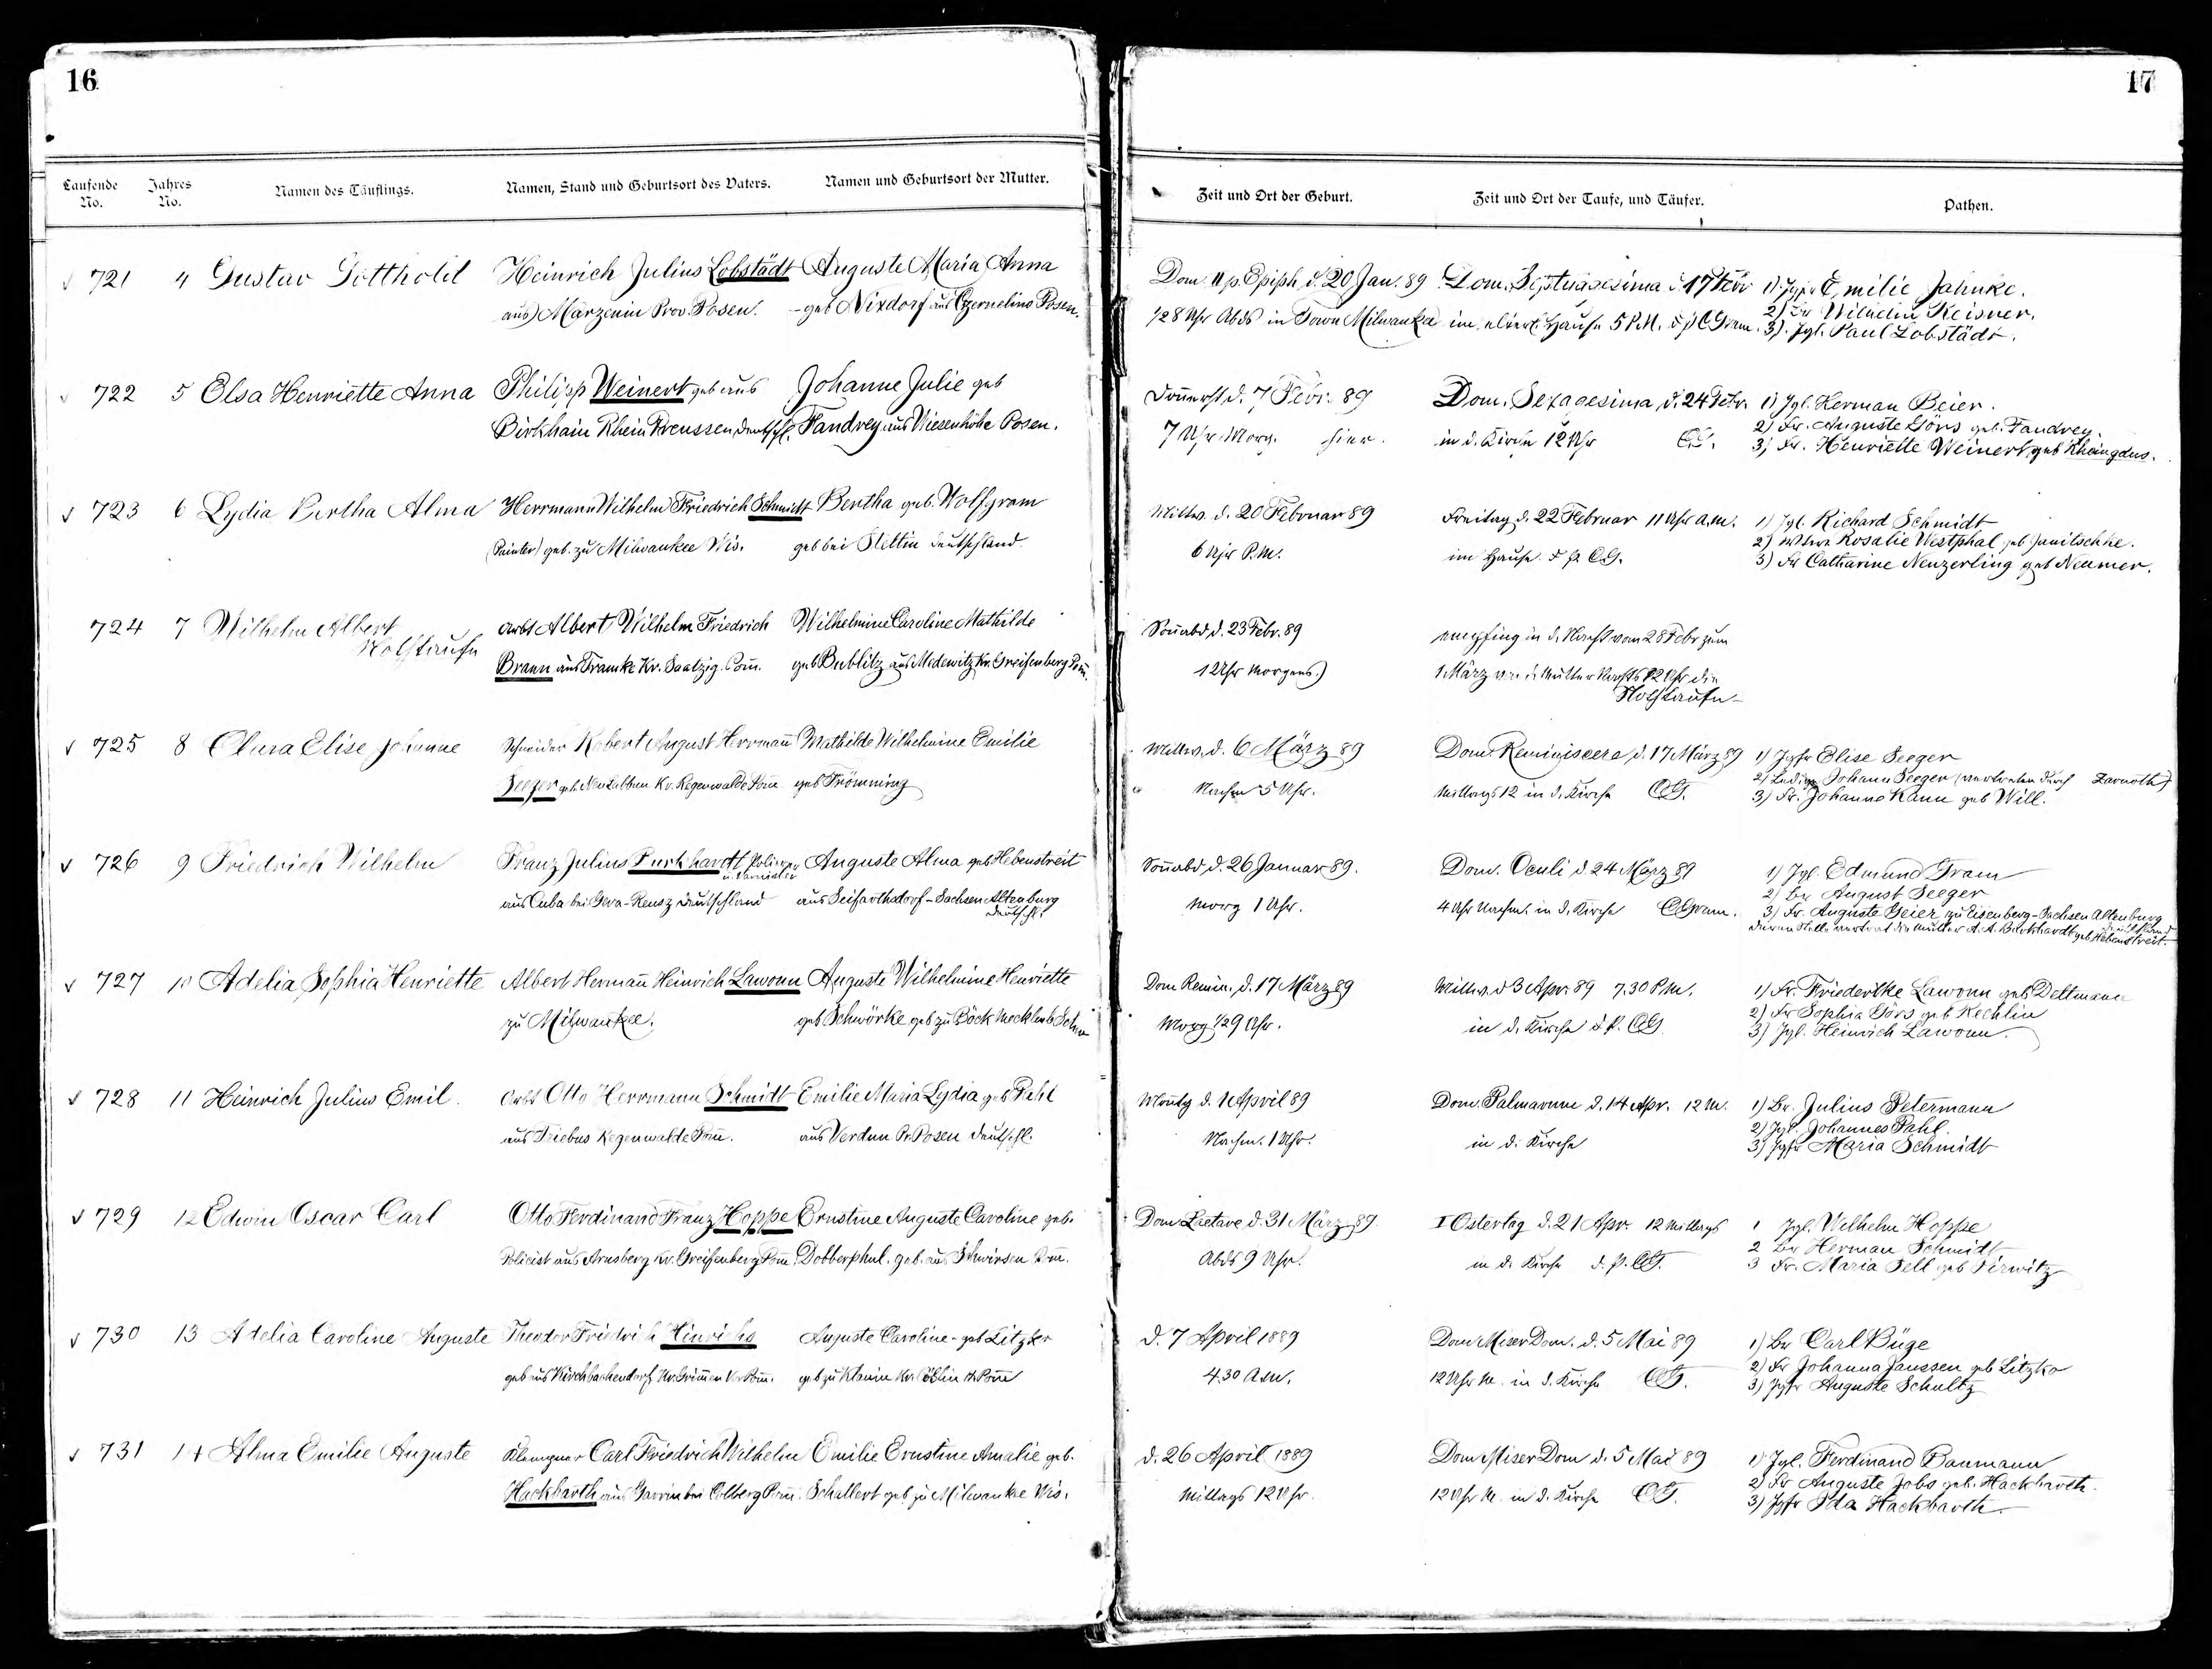 16
17
Laufende No.
Jahres No.
Namen des Täuflings.
Namen, Stand und Geburtsort des Vaters.
Namen und Geburtsort der Mutter.
Zeit und Ort der Geburt.
Zeit und Ort der Taufe, und Täufer.
Pathen.
721 4 Gustav Gotthold Heinrich Julius Lobstädt Auguste Maria Anna
aus Marzenin Prov. Posen. - geb Nixdorf aus Czernelino Posen.
Dom. II p. Epiph. d. 20 Jan. 89 Dom. Septuagesima d. 17 Febr 1) Jgfr Emilie Jahnke.
2) Hr Wilhelm Keisner.
1/28 Uhr Abds in Town Milwaukee im elterl. Hause 5 P.M. d. p. C Gram. 3) Jgl. Paul Lobstädt.
722 5 Elsa Henriette Anna Philipp Weinert geb aus Johanne Julie geb
Birkhain Rhein Preussen, Deutschl. Fandrey aus Wiesenhöhe Posen.
Donnerst d. 7 Febr. 89 Dom. Sexagesima, d. 24 Febr. 1) Jgl. Herman Beier.
2) Fr. Auguste Görs geb. Fandrey.
7 Uhr Morg. hier. in d. Kirche 12 Uhr CG. 3) Fr. Henriette Weinert geb
723 6 Lydia Bertha Alma Herrmann Wilhelm Friedrich Schmidt Bertha geb. Wolfgram
(Painter) geb. zu Milwaukee Wis. geb bei Stettin Deutschland.
Mittw. d. 20 Februar 89 Freitag d. 22 Februar 11 Uhr A.M. 1) Jgl. Richard Schmidt
2) Wttwe Rosalie Westphal geb Janitschke.
6 Uhr P.M. im Hause d. p. CG. 3) Fr Catharine Neuzerling geb Neumer.
724 7 Wilhelm Albert Arbt Albert Wilhelm Friedrich Wilhelmine Caroline Mathilde
Nothtaufe
Braun aus Framke Kr. Saatzig. Pom. geb Bublitz aus Medewitz Kr. Greifenberg Pom.
Sonnabd d. 23 Febr. 89 empfing in d. Nacht vom 28 Febr zum
1 Uhr Morgens.) 1. März von d. Mutter Nachts 12 Uhr die
Nothtaufe -
725 8 Clara Elise Johanne Schneider Robert August Herrmann Mathilde Wilhelmine Emilie
Seeger geb. Kr. Regenwalde Pom geb Frömming
Mittw. d. 6 März 89 Dom. Reminiscere, d. 17 März 89 1) Jgfr Elise Seeger
2) Ludwig Johann Seeger (vertreten durch Zarnoth)
Nachm 5 Uhr. Mittags 12 in d. Kirche CG. 3) Fr. Johanne Kann geb Will.
726 9 Friedrich Wilhelm Franz Julius Burkhardt Auguste Alma geb Hebenstreit
aus Cuba bei Gera-Reusz Deutschland aus Seifarthsdorf - Sachsen Altenburg
Deutschl.
Sonnabd, d. 26 Januar 89. Dom. Oculi d. 24 März 89 1) Jgl. Edmund Gram
2) Hr August Seeger
Morg 1 Uhr. 4 Uhr Nachm. in d. Kirche CGram. 3) Fr. Auguste Geier, zu Eisenberg - Sachsen Altenburg
Deutschland
deren Stelle vertrat die Mutter A. A. Burkhardt geb Hebenstreit.
727 10 Adelia Sophia Henriette Albert Hermann Heinrich Lawonn Auguste Wilhelmine Henriette
zu Milwaukee. geb Schwörke geb zu Böck Mecklenb Schw
Dom Remin. d. 17 März 89 Mittw. d 3 Apr. 89 7.30 P.M. 1) Fr. Friederike Lawonn geb Dettmann
2) Fr Sophia Görs geb Kechlin
Morg 1/29 Uhr. in d. Kirche d. p. CG. 3) Jgl. Heinrich Lawonn.
728 11 Heinrich Julius Emil. Arbt Otto Herrmann Schmidt Emilie Maria Lydia geb Pahl
aus Regenwalde Pom. aus Verdun Pr. Posen Deutschl.
Montg d. 1 April 89 Dom. Palmarum d. 14 Apr. 12 M. 1) Hr. Julius Petermann
2) Jgl. Johannes Pahl.
Nachm. 1 Uhr. in d. Kirche 3) Jgfr Maria Schmidt
729 12 Edwin Oscar Carl Otto Ferdinand Franz Hoppe Ernstine Auguste Caroline geb.
Policist aus Arnsberg Kr. Greifenberg Pom. Dobberphul. geb. aus Schwirsen Pom.
Dom Laetare d. 31 März 89. I Ostertag d. 21 Apr. 12 Mittags 1 Jgl. Wilhelm Hoppe
2 Hr Herman Schmidt
Abds 9 Uhr. in d. Kirche d. p. CG. 3 Fr. Maria Sell geb Pirwitz
730 13 Adelia Caroline Auguste Theodor Friedrich Hinrichs Auguste Caroline - geb Litzker
geb aus Kirchbachendorf Kr. Grimmen Pom. geb zu Klanin Kr. Cöslin Pom
d. 7 April 1889 Dom Miser Dom. d. 5 Mai 89 1) Hr Carl Büge
2) Fr Johanna Janssen geb Litzko
4.30 A.M. 12 Uhr M. in d. Kirche CG. 3) Jgfr Auguste Schultz
731 14 Alma Emilie Auguste Klempner Carl Friedrich Wilhelm Emilie Ernstine Amalie geb.
Hackbarth aus Garrin bei Colberg Pom. Schallert geb zu Milwaukee Wis.
d. 26 April 1889 Dom Miser Dom d. 5 Mai 89 1) Jgl. Ferdinand Baumann
2) Fr Auguste Jobs geb. Hackbarth.
Mittags 12 Uhr. 12 Uhr M. in d. Kirche CG. 3) Jgfr Ida Hackbarth.